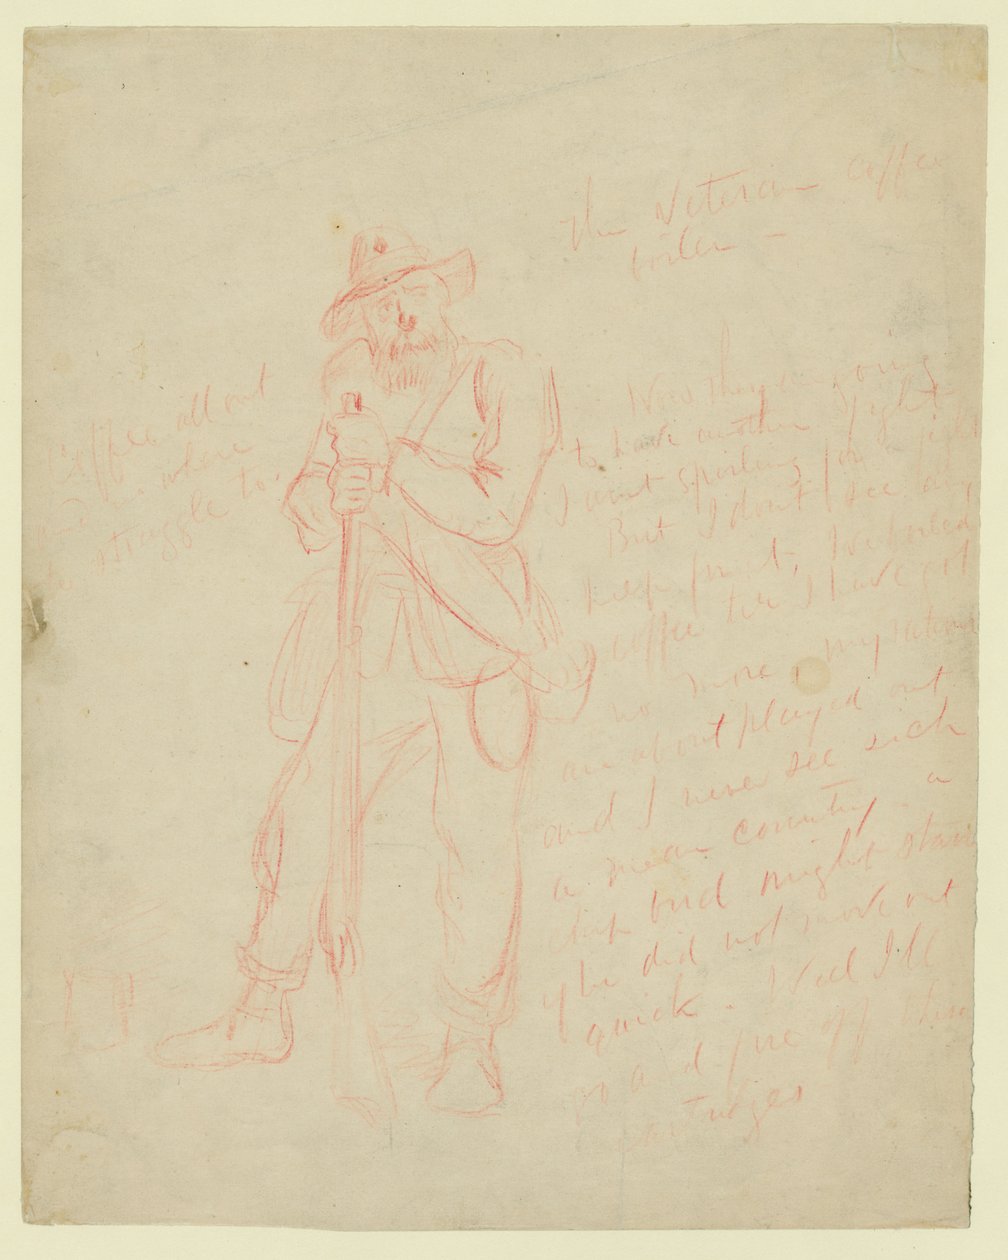 The Veteran coffee
boiler —
Coffee all out
and no where
to straggle to.
Now they are going
to have another fight
I aint spoiling for a fight
But I dont see any
help for it, Ive boiled
coffee till I have got
no more, my rations
are about played out
and I never see sich
a mean country - a
chip bird might starve
if he did not move out
quick. Well Ill
go and fire off these
cartridges